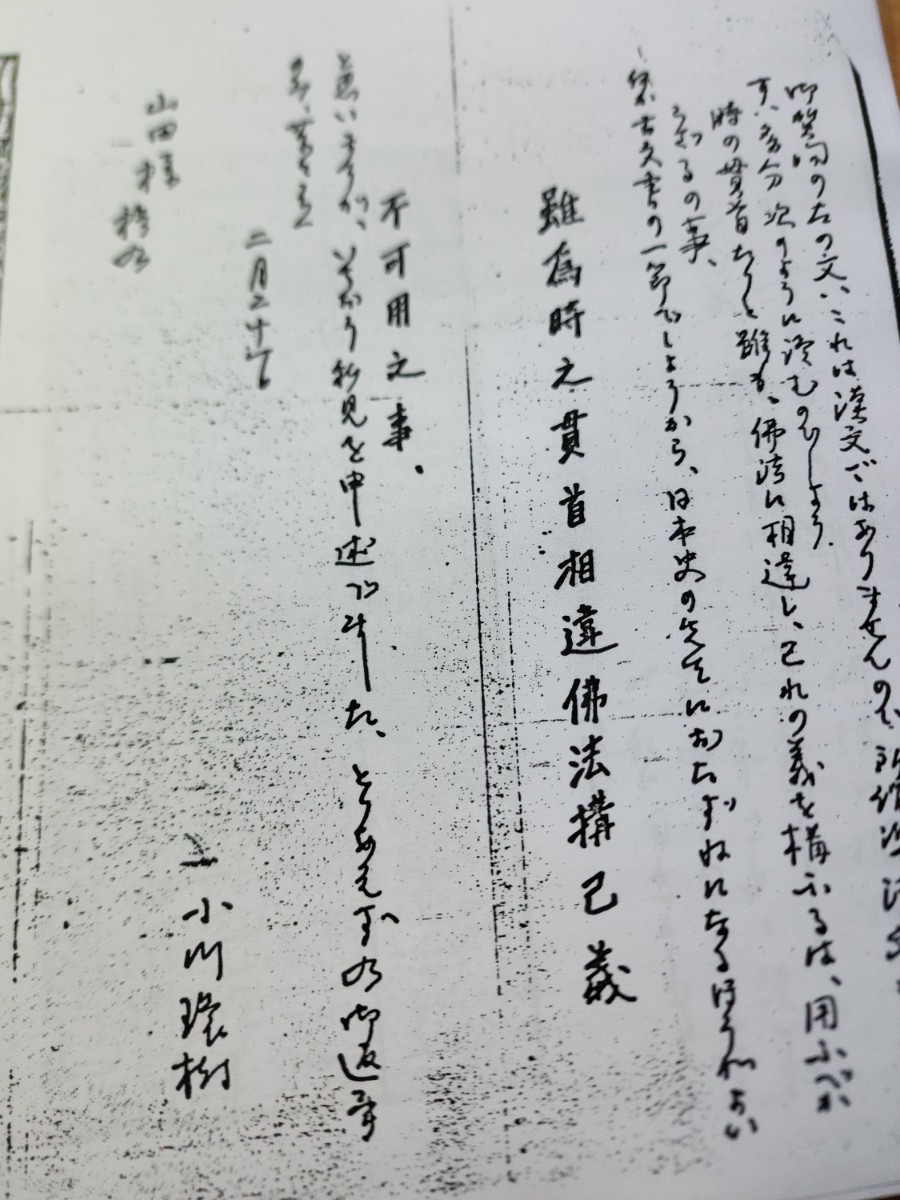 御質問の右の文、これは漢文ではありませんので、
すが、多分次のように読むのでしょう、
時の貫首なりと雖も、佛法に相違し、己れの義を構ふるは、用ふべか
らざるの事、
古文書の一節でしょうから、日本史の先生におたずねになるほうがよい
雖為時之貫首相違佛法構己義
不可用之事、
と思いますが、私見を申述べました、とりあえず右御返事
のみ、
二月二十
小川環樹
山田様